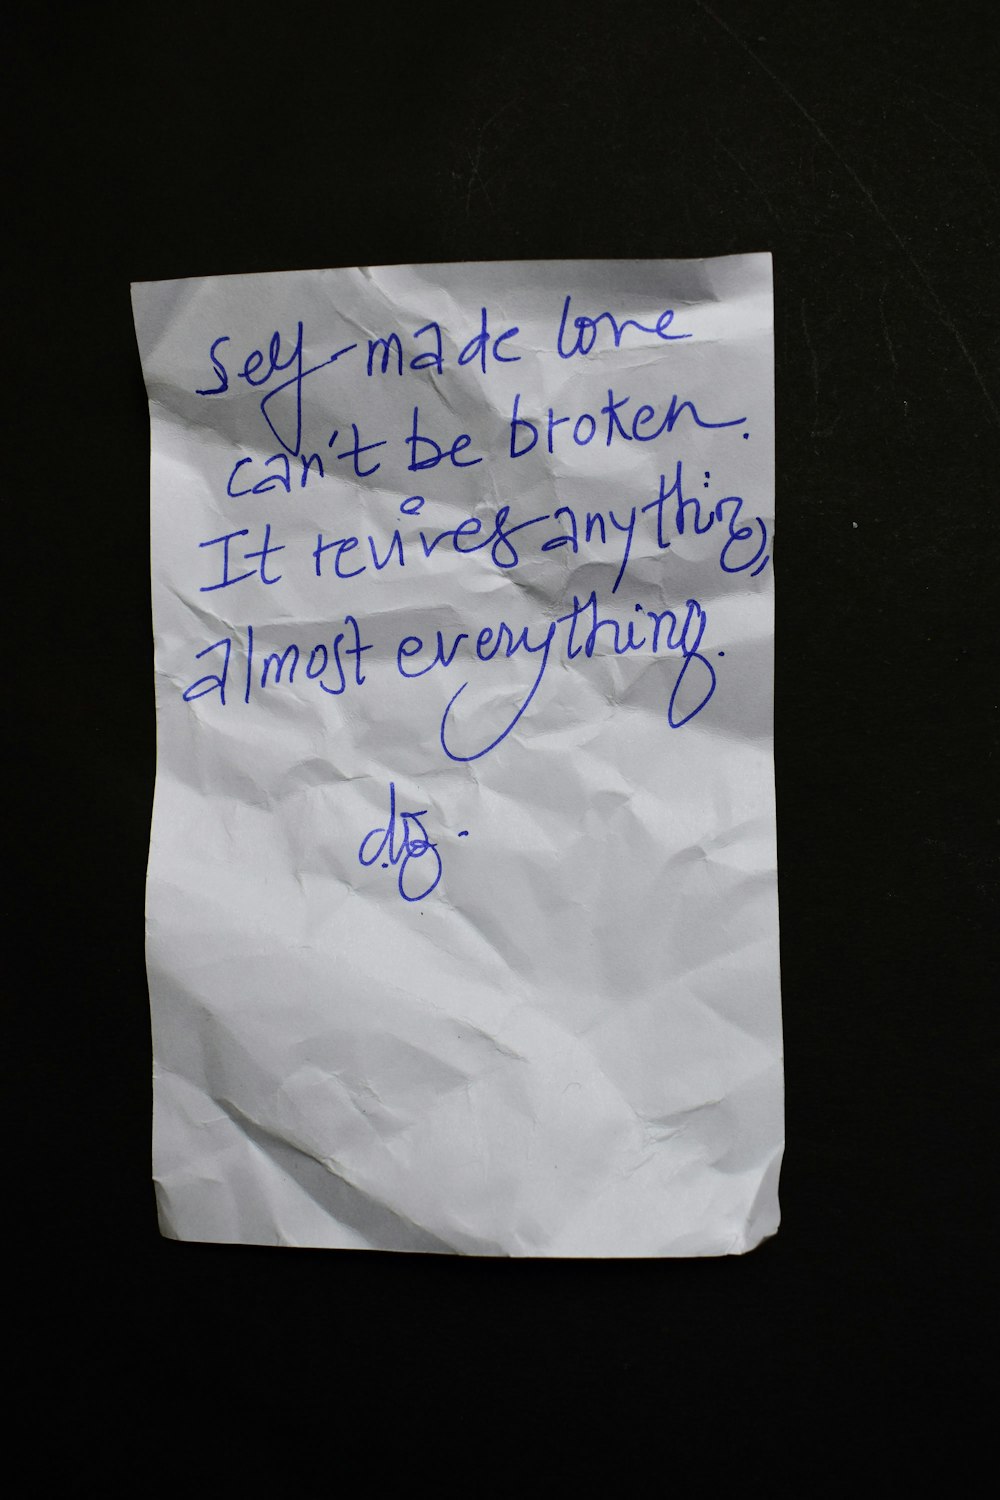 Self-made love
can't be broken.
It revives anything,
almost everything.